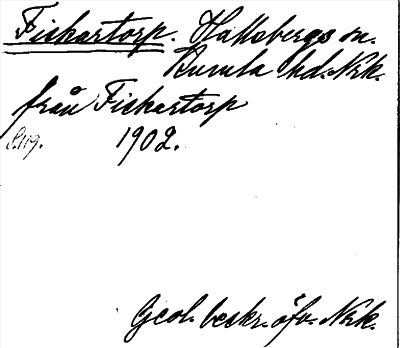 Fiskartorp. Hallsbergs sn.
Kumla hd. Nrk.
från Fiskartorp
S. 119. 1902.
Geol. beskr. öfv. Nrk.